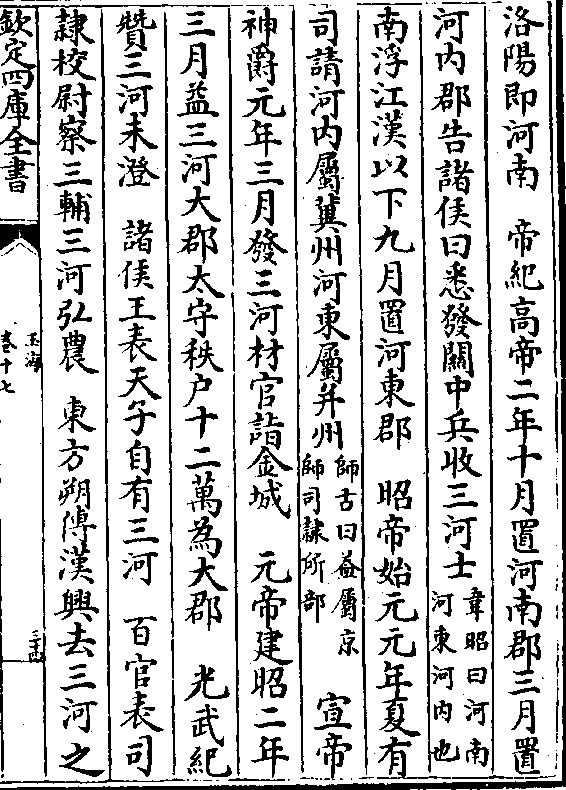 洛陽即河南　帝紀高帝二年十月置河南郡三月置
河内郡告諸侯曰悉發關中兵收三河士韋昭曰河南河東河内也
南浮江漢以下九月置河東郡　昭帝始元元年夏有
司請河内屬冀州河東屬并州師古曰益屬京師司隸所部　宣帝
神爵元年三月發三河材官詣金城　元帝建昭二年
三月益三河大郡太守秩户十二萬為大郡　光武紀
贊三河未澄　諸侯王表天子自有三河　百官表司
隸校尉察三輔三河弘農　東方朔傳漢興去三河之
欽定四庫全書
玉海
卷十七
三十四